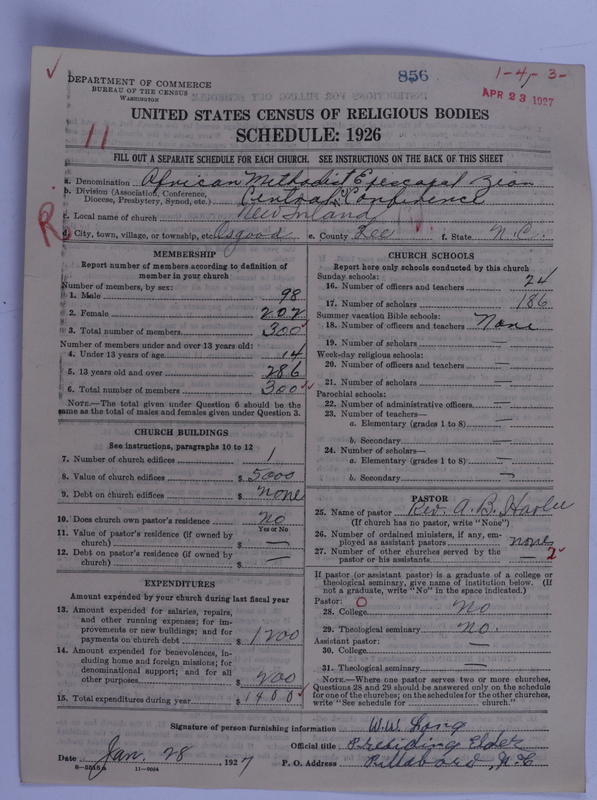 856
1-4-3-
APR 23 1927
DEPARTMENT OF COMMERCE
BUREAU OF THE CENSUS
WASHINGTON
UNITED STATES CENSUS OF RELIGIOUS BODIES
SCHEDULE: 1926
11
FILL OUT A SEPARATE SCHEDULE FOR EACH CHURCH. SEE INSTRUCTIONS ON THE BACK OF THIS SHEET
a. Denomination African Methodist Episcopal Zion
b. Division (Association, Conference, Diocese, Presbytery, Synod, etc.) Central Conference
c. Local name of church New Inland
R
d. City, town, village, or township, etc. Osgood e. County Lee f. State N.C.
MEMBERSHIP
Report number of members according to definition of
member in your church
Number of members, by sex:
1. Male 98
2. Female 202
3. Total number of members 300
Number of members under and over 13 years old:
4. Under 13 years of age 14
5. 13 years old and over 286
6. Total number of members 300
NOTE.—The total given under Question 6 should be the
same as the total of males and females given under Question 3.
CHURCH BUILDINGS
See instructions, paragraphs 10 to 12
7. Number of church edifices 1
8. Value of church edifices $ 5000
9. Debt on church edifices $ none
10. Does church own pastor's residence no
Yes or No
11. Value of pastor's residence (if owned by
church) $ —
12. Debt on pastor's residence (if owned by
church) $ —
EXPENDITURES
Amount expended by your church during last fiscal year
13. Amount expended for salaries, repairs,
and other running expenses; for im-
provements or new buildings; and for
payments on church debt $ 1200
14. Amount expended for benevolences, in-
cluding home and foreign missions; for
denominational support; and for all
other purposes $ 200
15. Total expenditures during year $ 1400
CHURCH SCHOOLS
Report here only schools conducted by this church
Sunday schools:
16. Number of officers and teachers 24
17. Number of scholars 186
Summer vacation Bible schools:
18. Number of officers and teachers None
19. Number of scholars —
Week-day religious schools:
20. Number of officers and teachers —
21. Number of scholars —
Parochial schools:
22. Number of administrative officers —
23. Number of teachers—
a. Elementary (grades 1 to 8) —
b. Secondary —
24. Number of scholars—
a. Elementary (grades 1 to 8) —
b. Secondary —
PASTOR
25. Name of pastor Rev. A. B.
(If church has no pastor, write "None")
26. Number of ordained ministers, if any, em-
ployed as assistant pastors none
27. Number of other churches served by the
pastor or his assistants — 2
If pastor (or assistant pastor) is a graduate of a college or
theological seminary, give name of institution below. (If
not a graduate, write "No" in the space indicated.)
Pastor: O
28. College no
29. Theological seminary no.
Assistant pastor:
30. College —
31. Theological seminary —
NOTE.—Where one pastor serves two or more churches,
Questions 28 and 29 should be answered only on the schedule
for one of the churches; on the schedules for the other churches,
write "See schedule for church."
Signature of person furnishing information W. W. Long
Official title Presiding Elder
Date Jan. 28 1927 P. O. Address Pittsboro, N.C
8—5515a 11—9054